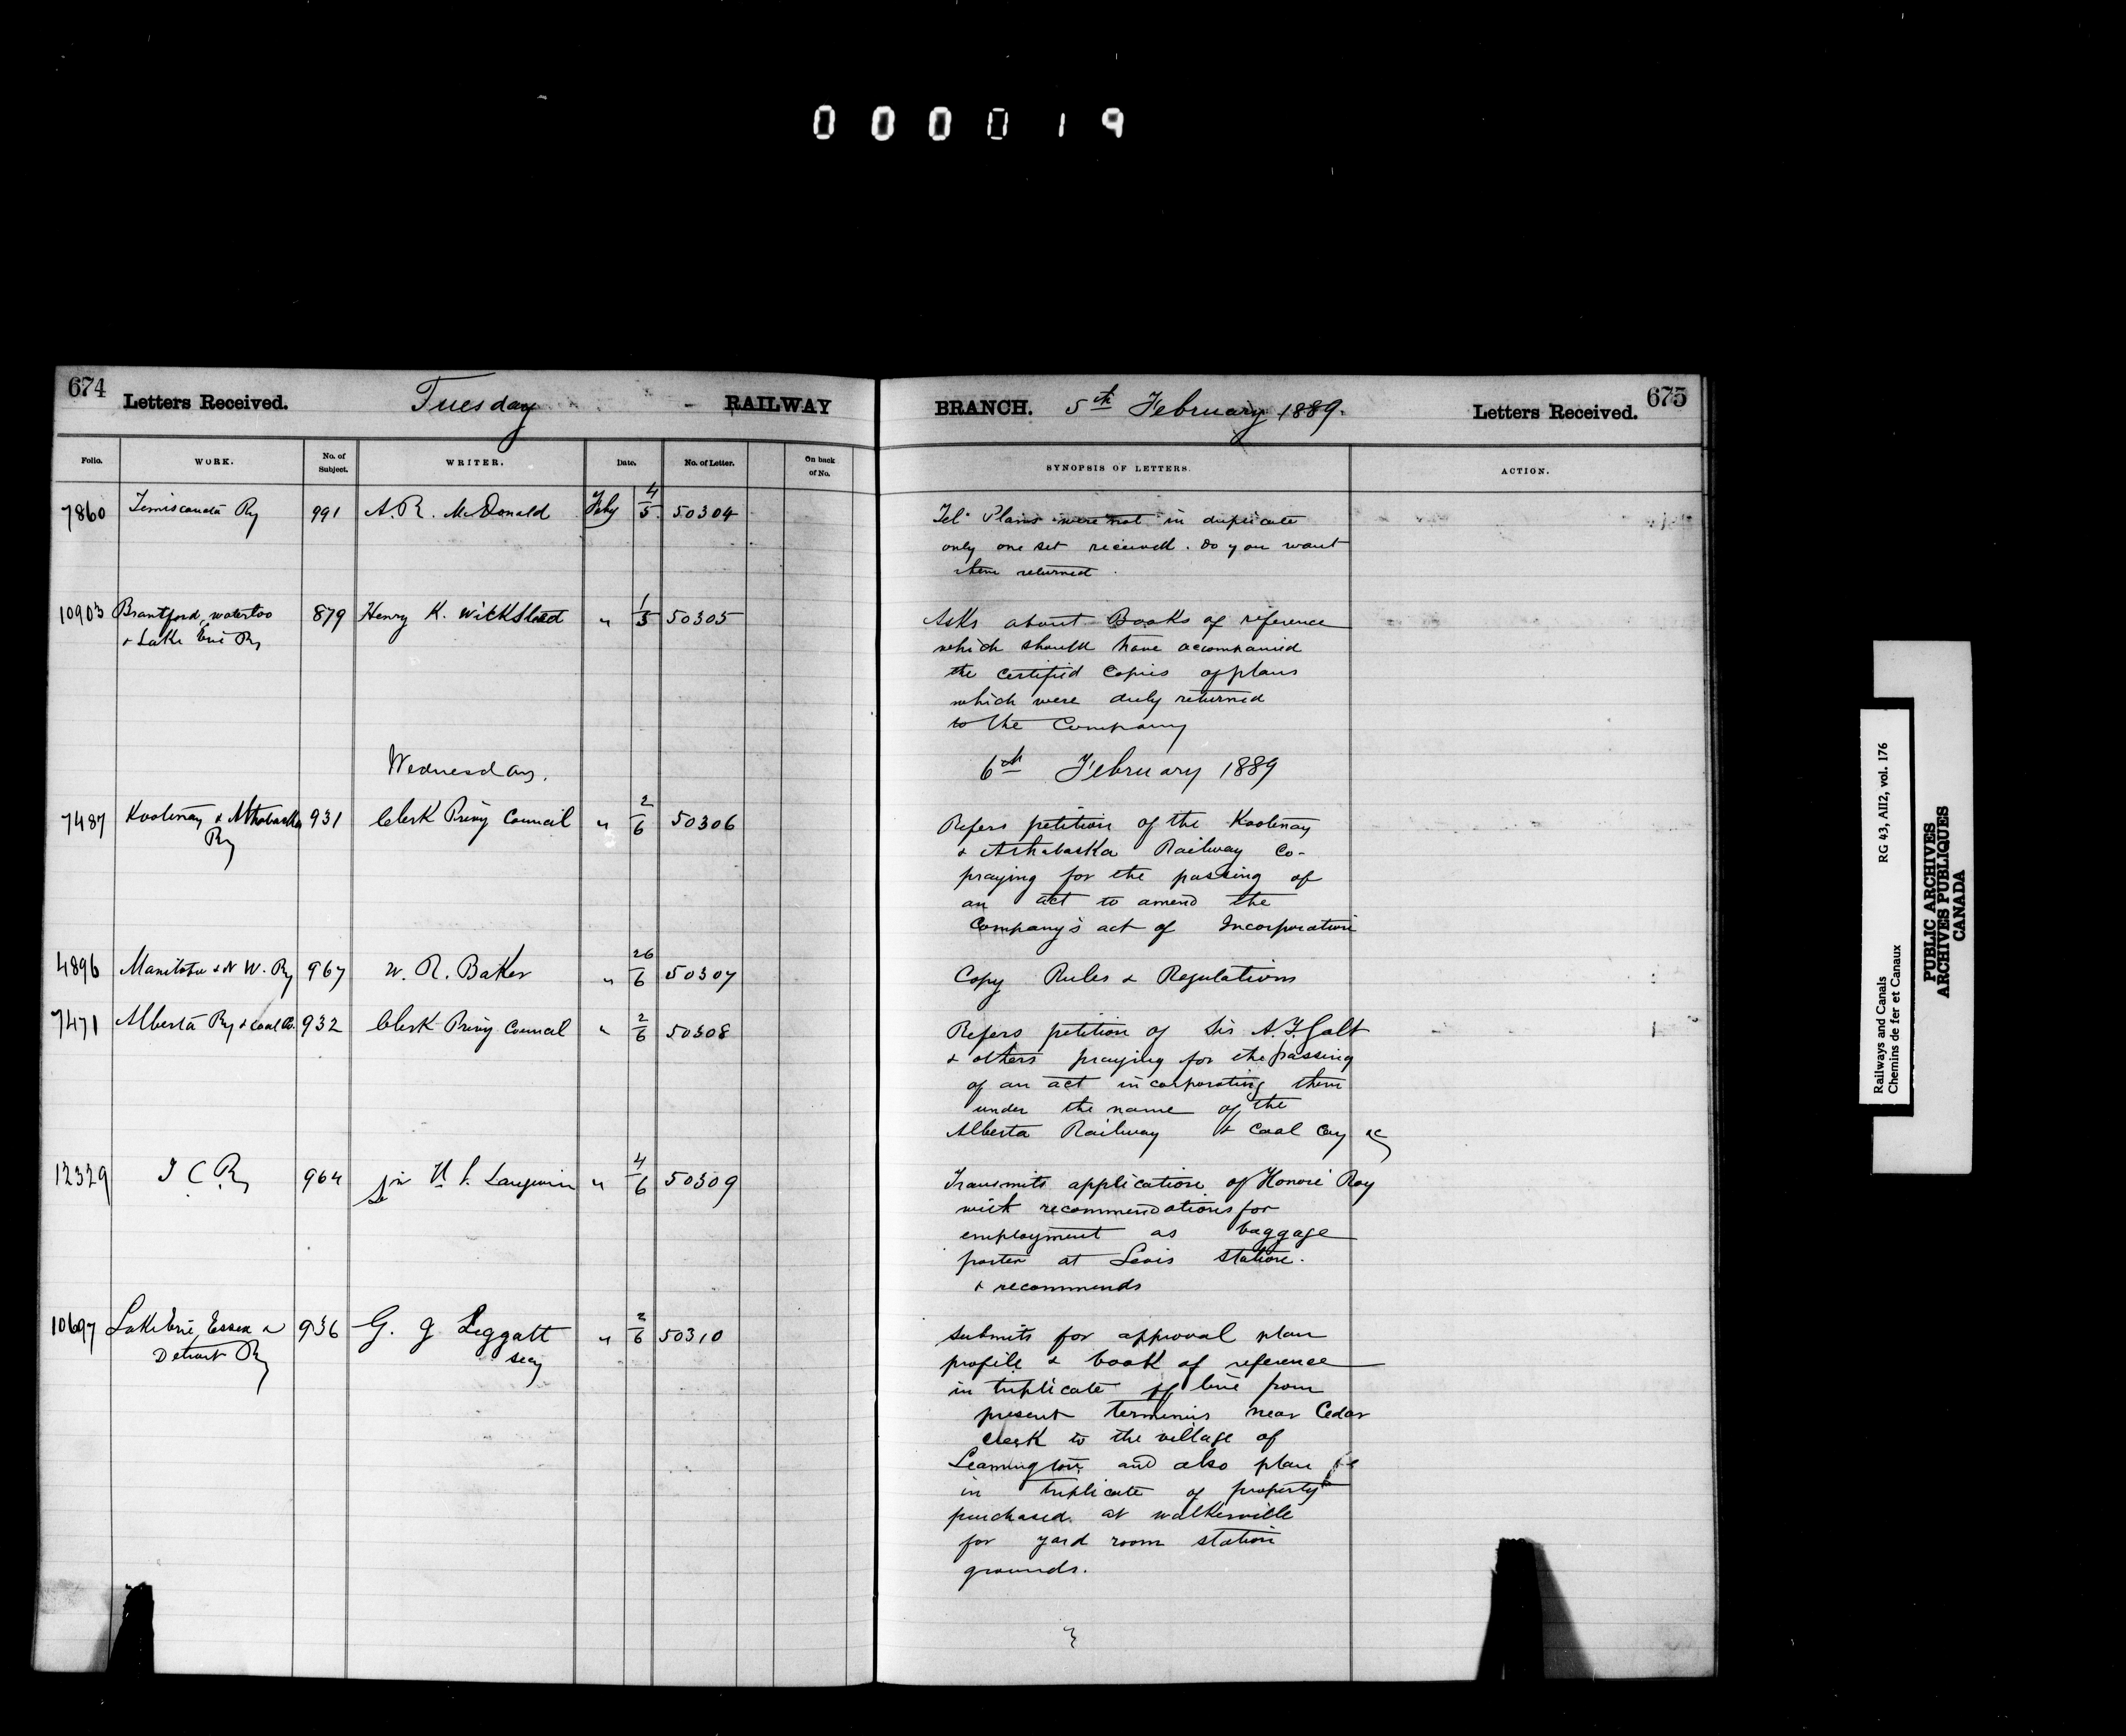 000019
674 Letters Received. Tuesday RAILWAY
BRANCH. 5th February 1889. Letters Received. 675
Folio. WORK. No. of Subject. WRITER. Date. No. of Letter. On back of No.
SYNOPSIS OF LETTERS. ACTION.
7860 Temiscouata Ry 991 A. R. McDonald Feby 4/5 50304
Tel. Plans were not in duplicate
only one set received. Do you want
them returned.
10903 Brantford, Waterloo 879 Henry K. Wicksteed " 1/5 50305
& Lake Erie Ry
Asks about Books of reference
which should have accompanied
the certified copies of plans
which were duly returned
to the Company
Wednesday. 6th February 1889
7487 Kootenay & Athabaska 931 Clerk Privy Council " 2/6 50306
Ry
Refers petition of the Kootenay
& Athabaska Railway Co-
praying for the passing of
an act to amend the
Company's act of Incorporation
4896 Manitoba & N W. Ry 967 W. R. Baker " 26/6 50307
Copy Rules & Regulations
7471 Alberta Ry & Coal Co. 932 Clerk Privy Council " 2/6 50308
Refers petition of Sir A. T. Galt
& others praying for the passing
of an act incorporating them
under the name of the
Alberta Railway & Coal Coy &c
12329 I C R 964 Sir H. L. Langevin " 4/6 50309
Transmits application of Honoré Roy
with recommendations for
employment as baggage
porter at Levis station.
& recommends
10697 Lake Erie, Essex & 936 G. J. Leggatt " 2/6 50310
Detroit Ry Secy
Submits for approval plan
profile & book of reference
in triplicate of line from
present terminus near Cedar
Creek to the village of
Leamington and also plan &c
in triplicate of property
purchased at Walkerville
for yard room station
grounds.
Railways and Canals RG 43, AII2, vol. 176
Chemins de fer et Canaux
PUBLIC ARCHIVES
ARCHIVES PUBLIQUES
CANADA